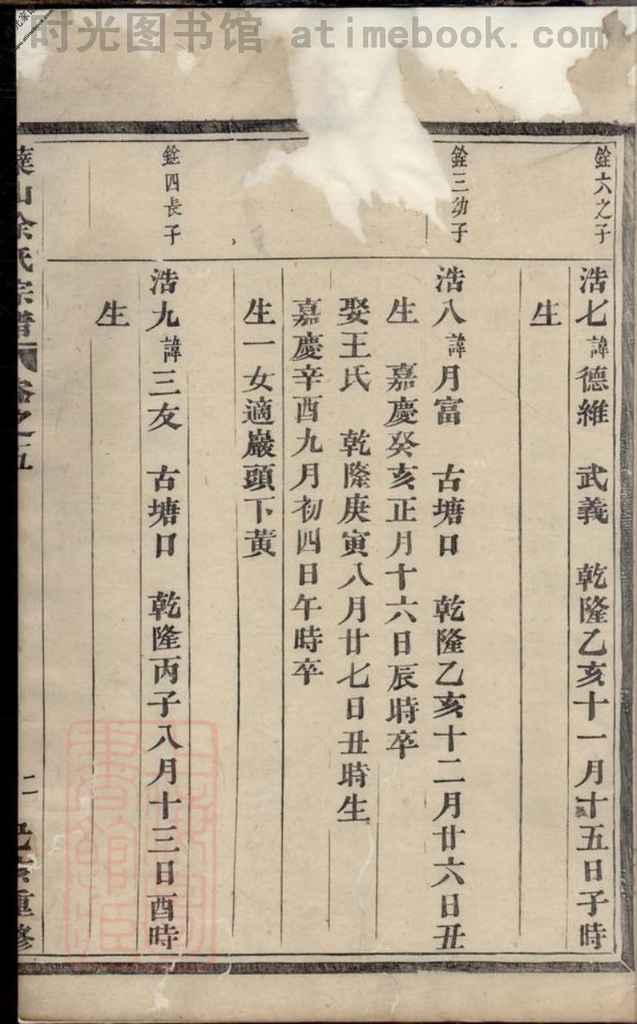 时光图书馆 atimebook.com
銓六之子
浩七諱德維 武義 乾隆乙亥十一月十五日子時
生
銓三幼子
浩八諱月富 古塘口 乾隆乙亥十二月廿六日丑
生 嘉慶癸亥正月十六日辰時卒
娶王氏 乾隆庚寅八月廿七日丑時生
嘉慶辛酉九月初四日午時卒
生一女適巖頭下黃
銓四長子
浩九諱三友 古塘口 乾隆丙子八月十三日酉時
生
山余氏宗譜 卷之五 二 重修